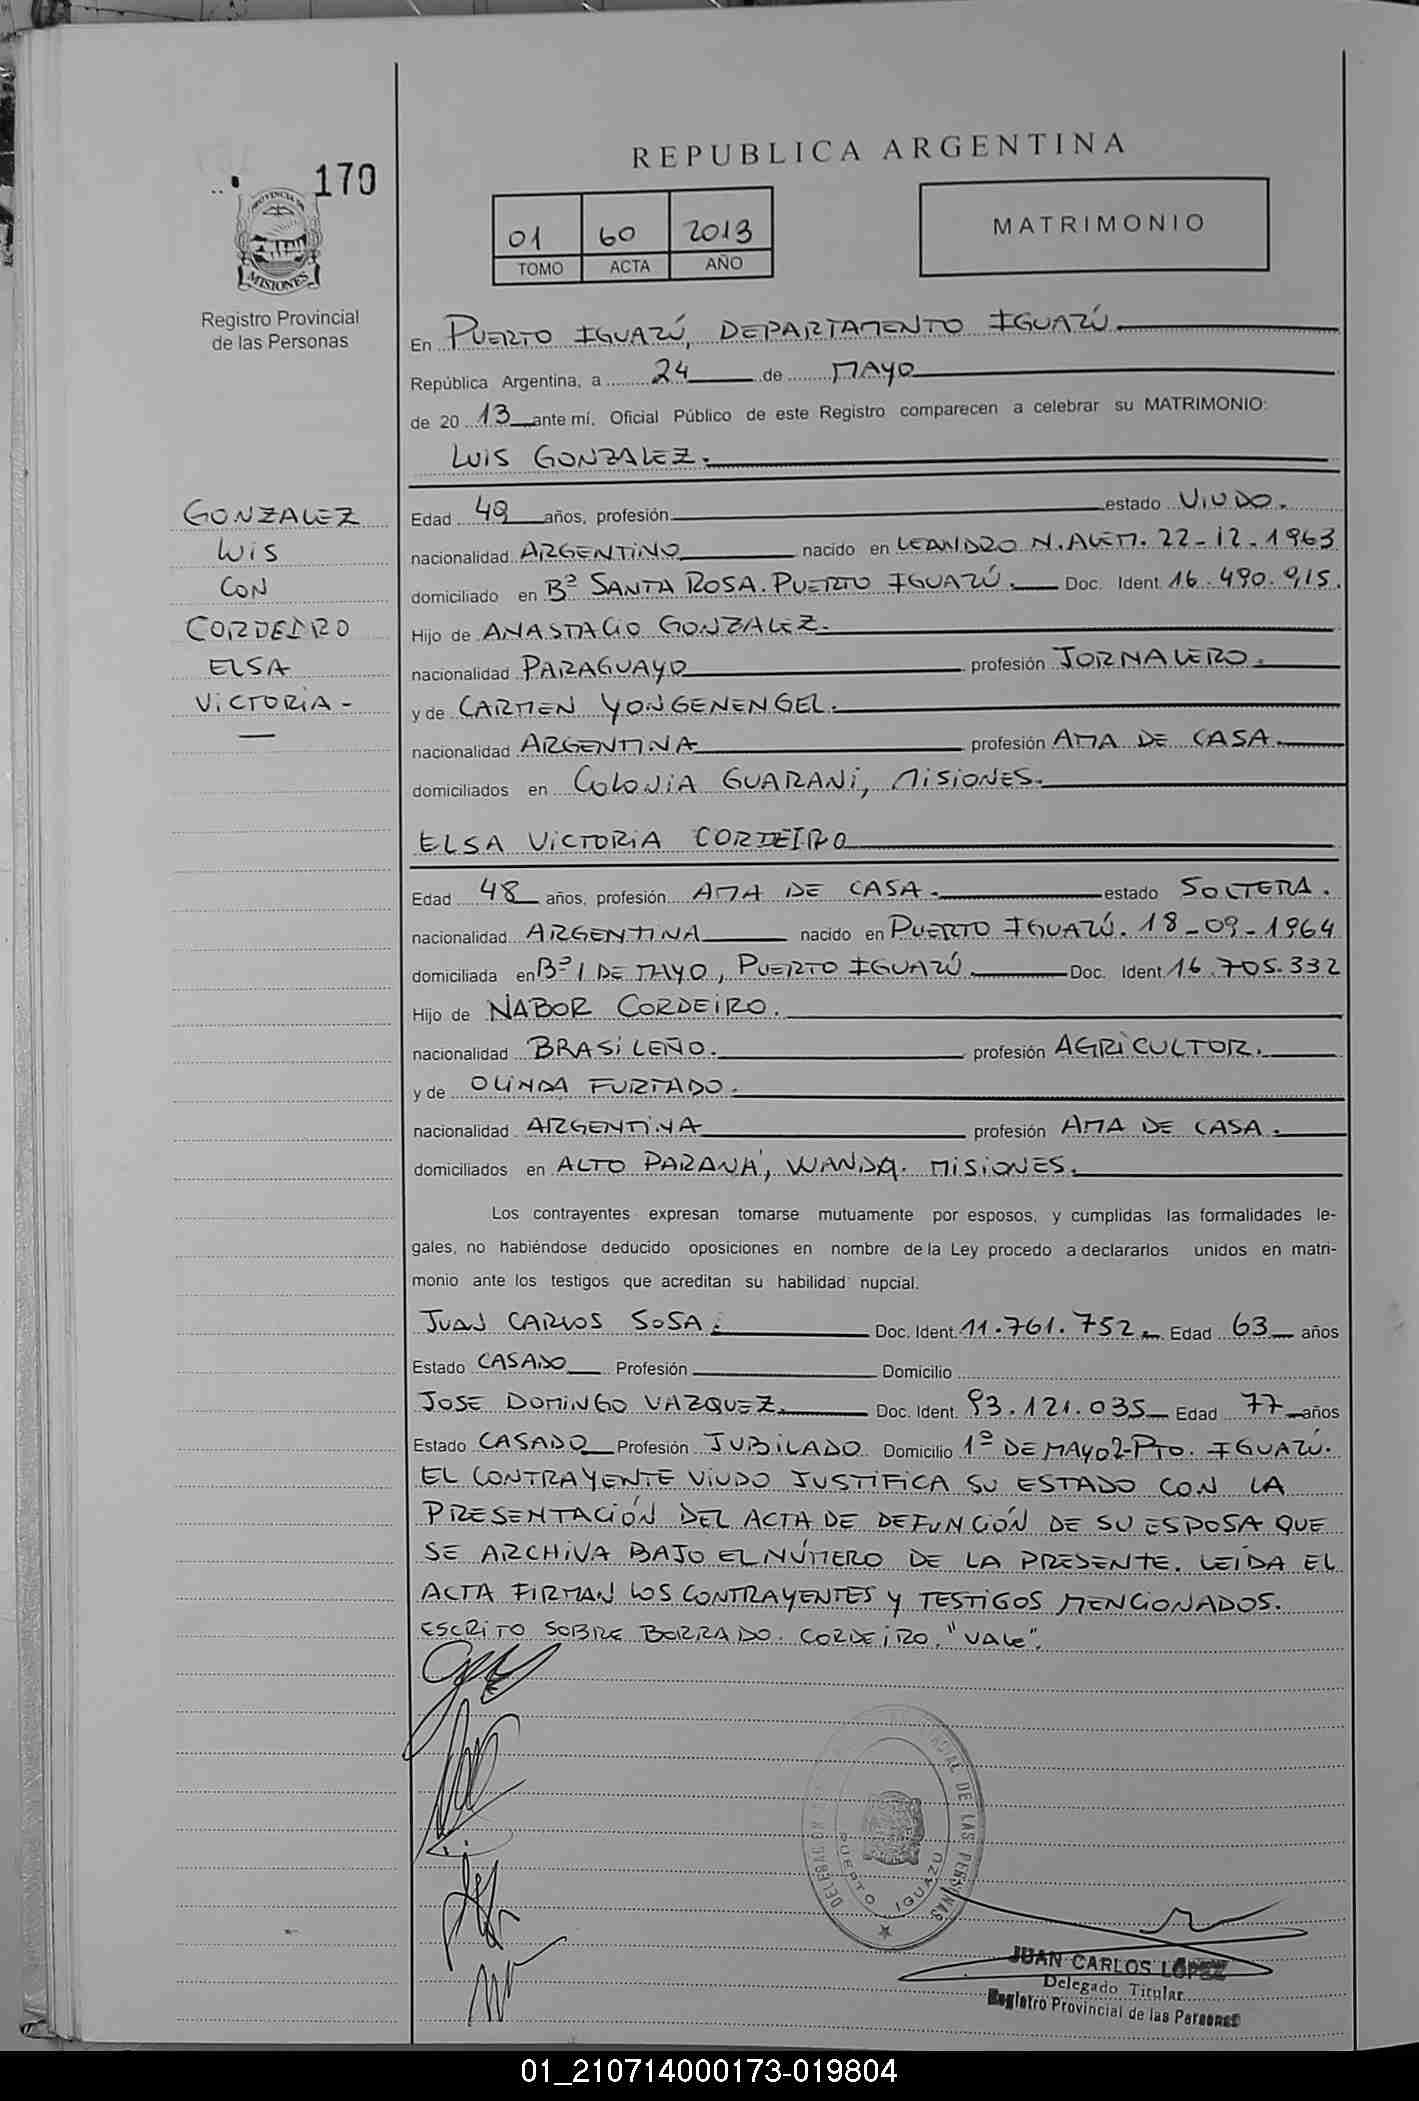 170
PROVINCIA DE
MISIONES
Registro Provincial
de las Personas
REPUBLICA ARGENTINA
01 60 2013
TOMO ACTA AÑO
MATRIMONIO
En PUERTO IGUAZÚ, DEPARTAMENTO IGUAZÚ
República Argentina, a 24 de MAYO
de 20 13 ante mí, Oficial Público de este Registro comparecen a celebrar su MATRIMONIO:
LUIS GONZALEZ.
GONZALEZ
LUIS
CON
CORDEIRO
ELSA
VICTORIA -
Edad 49 años, profesión estado VIUDO.
nacionalidad ARGENTINO nacido en LEANDRO N. ALEM. 22-12-1963
domiciliado en Bº SANTA ROSA. PUERTO IGUAZÚ. Doc. Ident. 16.490.915.
Hijo de ANASTACIO GONZALEZ.
nacionalidad PARAGUAYO profesión JORNALERO.
y de CARMEN YONGENENGEL.
nacionalidad ARGENTINA profesión AMA DE CASA.
domiciliados en COLONIA GUARANI, MISIONES.
ELSA VICTORIA CORDEIRO
Edad 48 años, profesión AMA DE CASA. estado SOLTERA.
nacionalidad ARGENTINA nacido en PUERTO IGUAZÚ. 18-09-1964
domiciliada en Bº 1 DE MAYO, PUERTO IGUAZÚ. Doc. Ident. 16.705.332
Hijo de NABOR CORDEIRO.
nacionalidad BRASILEÑO. profesión AGRICULTOR.
y de OLINDA FURTADO.
nacionalidad ARGENTINA profesión AMA DE CASA.
domiciliados en ALTO PARANÁ, WANDA. MISIONES.
Los contrayentes expresan tomarse mutuamente por esposos, y cumplidas las formalidades le-
gales, no habiéndose deducido oposiciones en nombre de la Ley procedo a declararlos unidos en matri-
monio ante los testigos que acreditan su habilidad nupcial.
JUAN CARLOS SOSA. Doc. Ident. 11.761.752 Edad 63 años
Estado CASADO Profesión Domicilio
JOSE DOMINGO VAZQUEZ. Doc. Ident. 93.121.035 Edad 77 años
Estado CASADO Profesión JUBILADO Domicilio 1º DE MAYO 2-PTO. IGUAZÚ.
EL CONTRAYENTE VIUDO JUSTIFICA SU ESTADO CON LA
PRESENTACIÓN DEL ACTA DE DEFUNCIÓN DE SU ESPOSA QUE
SE ARCHIVA BAJO EL NÚMERO DE LA PRESENTE. LEIDA EL
ACTA FIRMAN LOS CONTRAYENTES Y TESTIGOS MENCIONADOS.
ESCRITO SOBRE BORRADO. CORDEIRO. "VALE".
DELEGACIÓN PROVINCIAL DE LAS PERSONAS
PUERTO IGUAZU
JUAN CARLOS LÓPEZ
Delegado Titular
Registro Provincial de las Personas
01_210714000173-019804